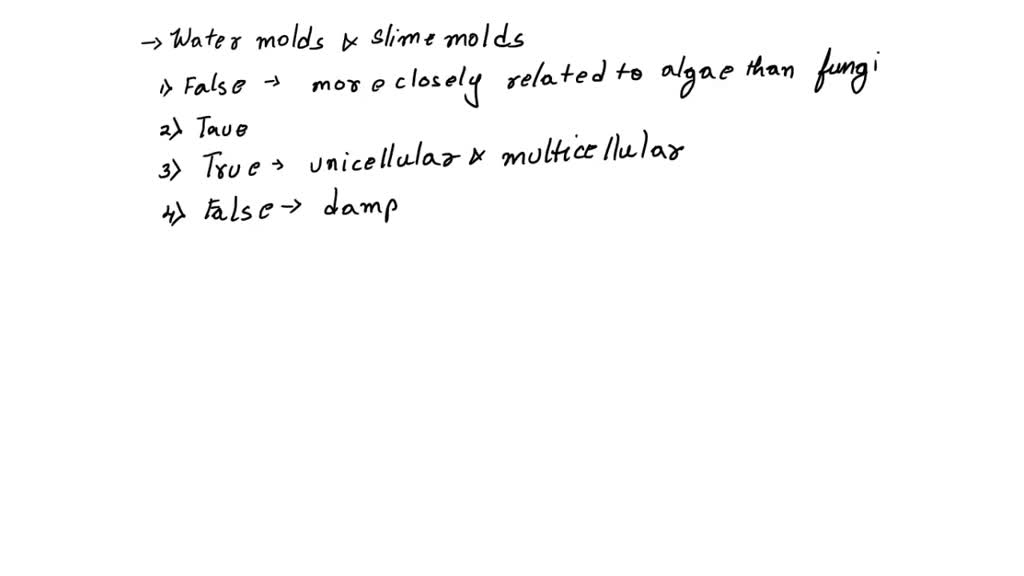 → Water molds & slime molds
1) False → more closely related to algae than fungi
2) True
3) True → unicellular & multicellular
4) False → damp